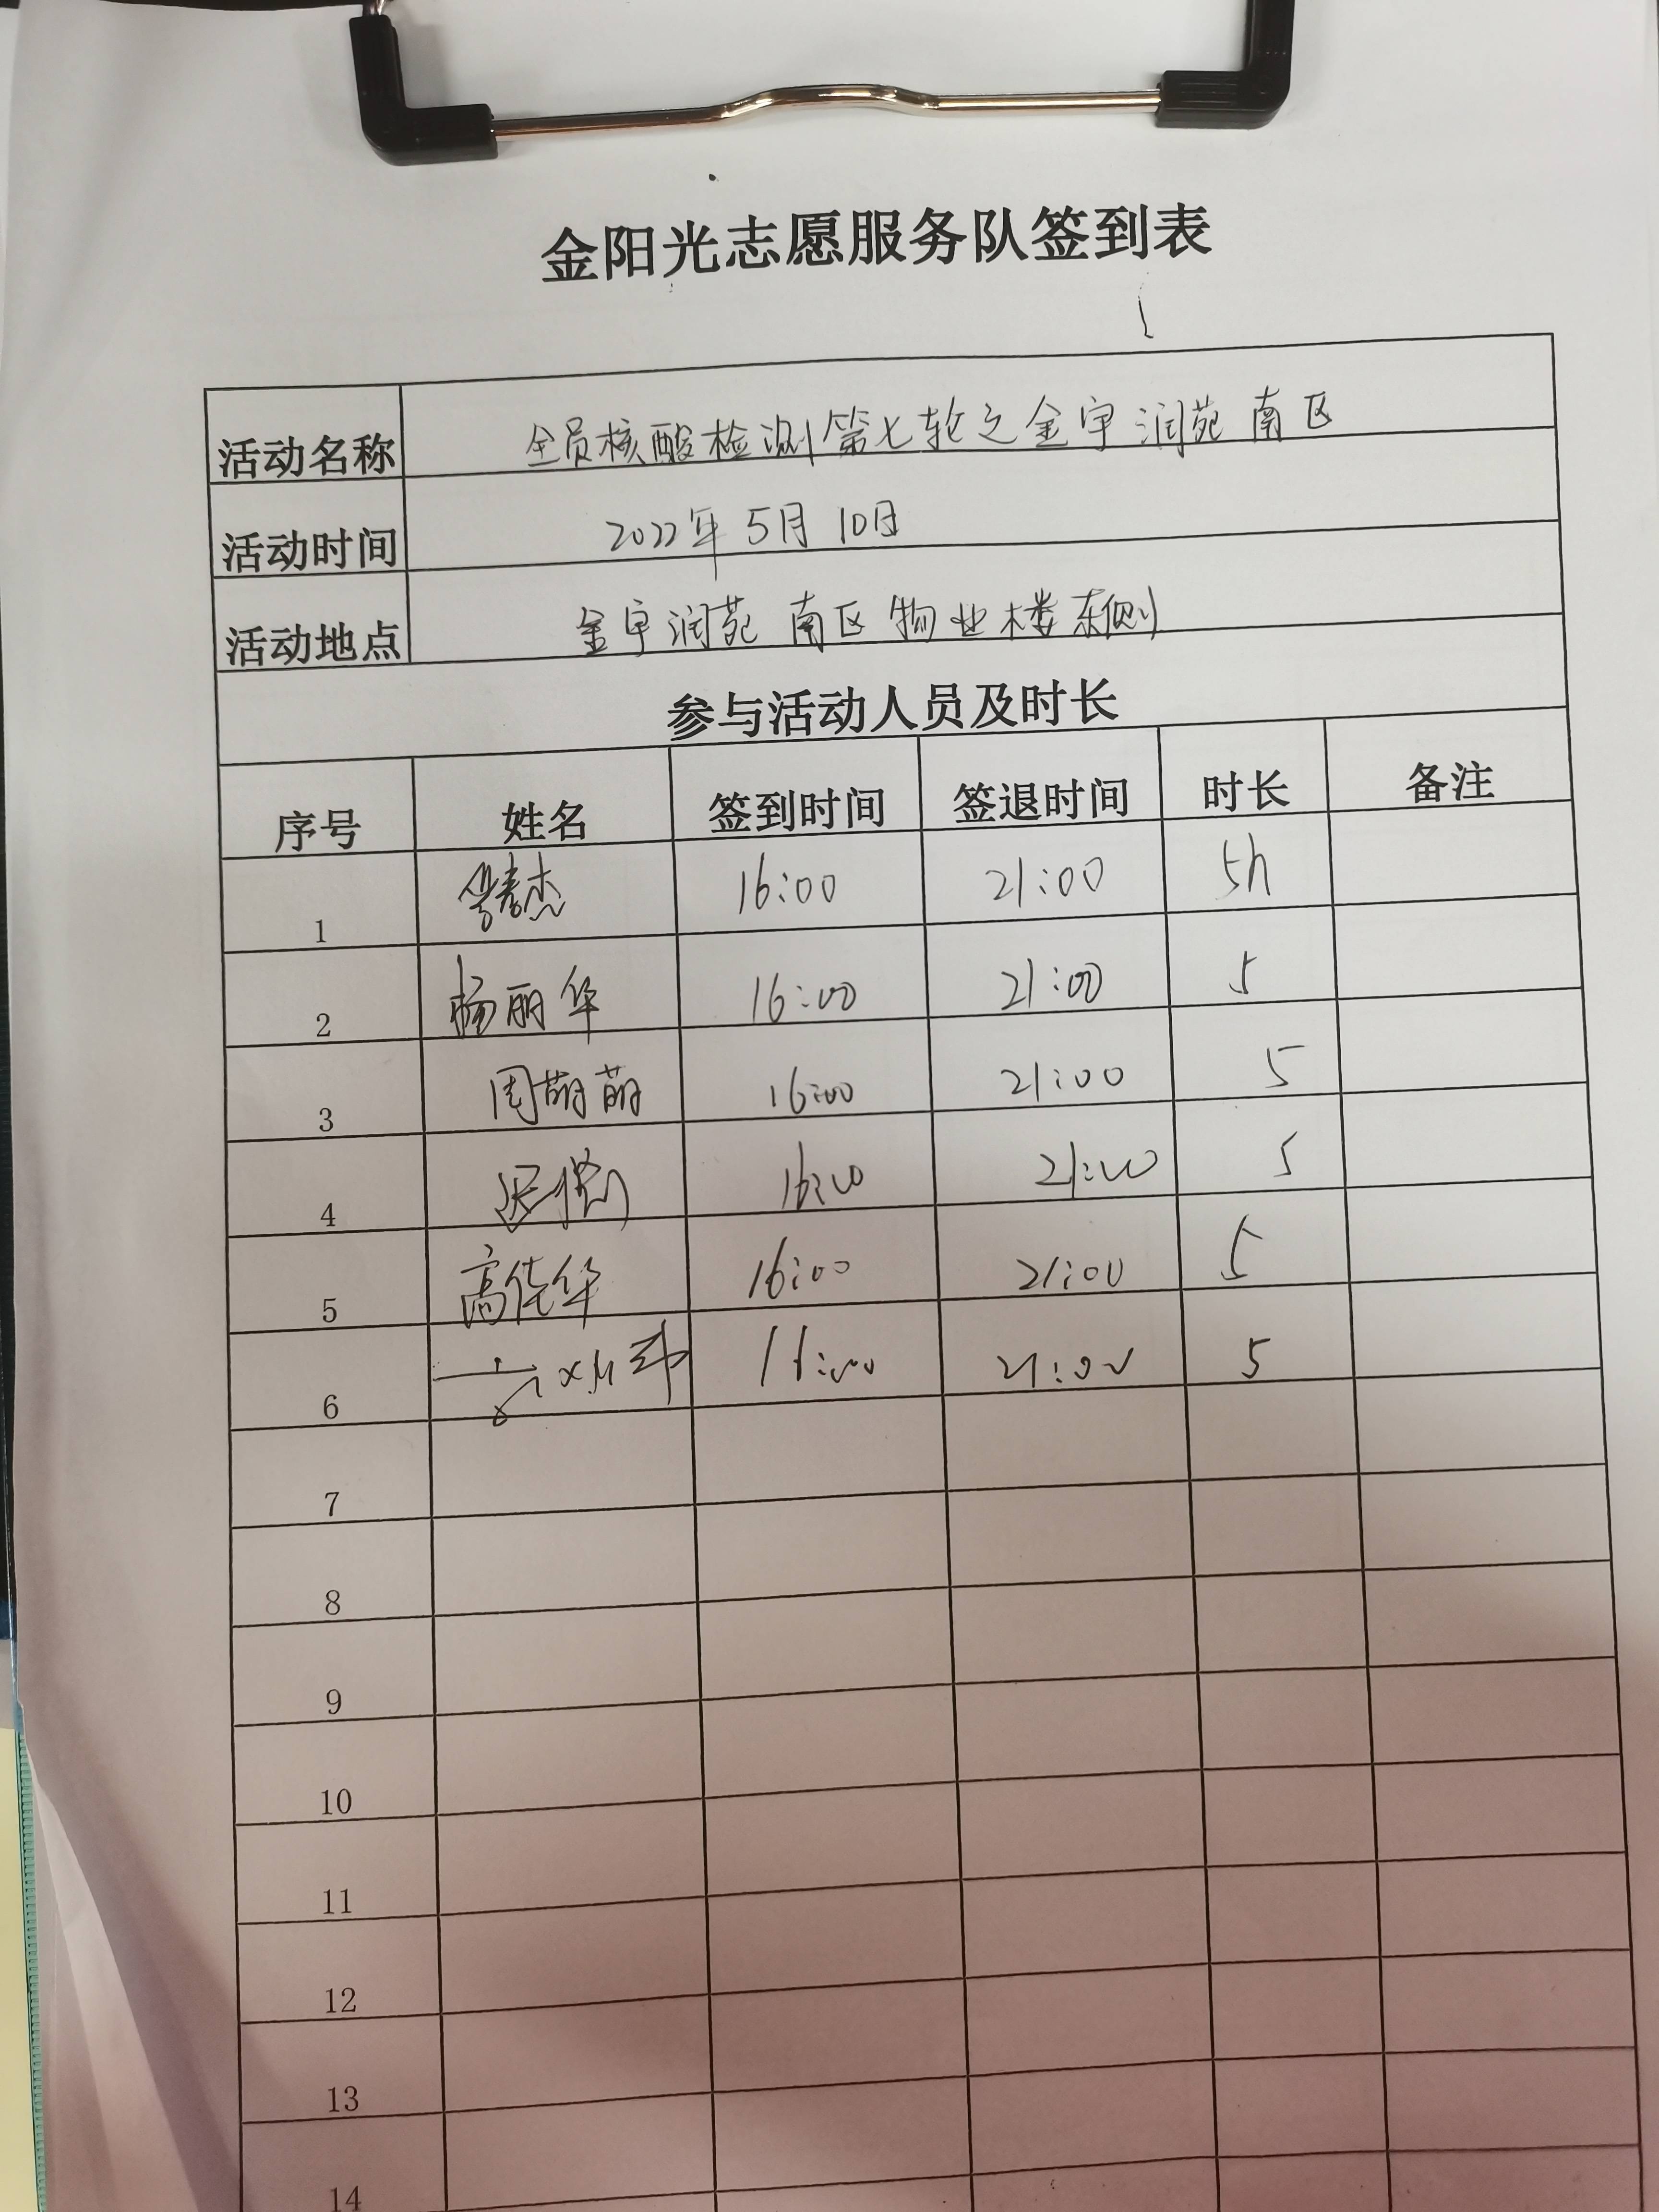 金阳光志愿服务队签到表
活动名称 全员核酸检测第七轮之金宇润苑南区
活动时间 2022年5月10日
活动地点 金宇润苑南区物业楼东侧
参与活动人员及时长
序号 姓名 签到时间 签退时间 时长 备注
1 16:00 21:00 5h
2 杨丽华 16:00 21:00 5
3 周萌萌 16:00 21:00 5
4 16:00 21:00 5
5 高佳华 16:00 21:00 5
6 16:00 21:00 5
7
8
9
10
11
12
13
14